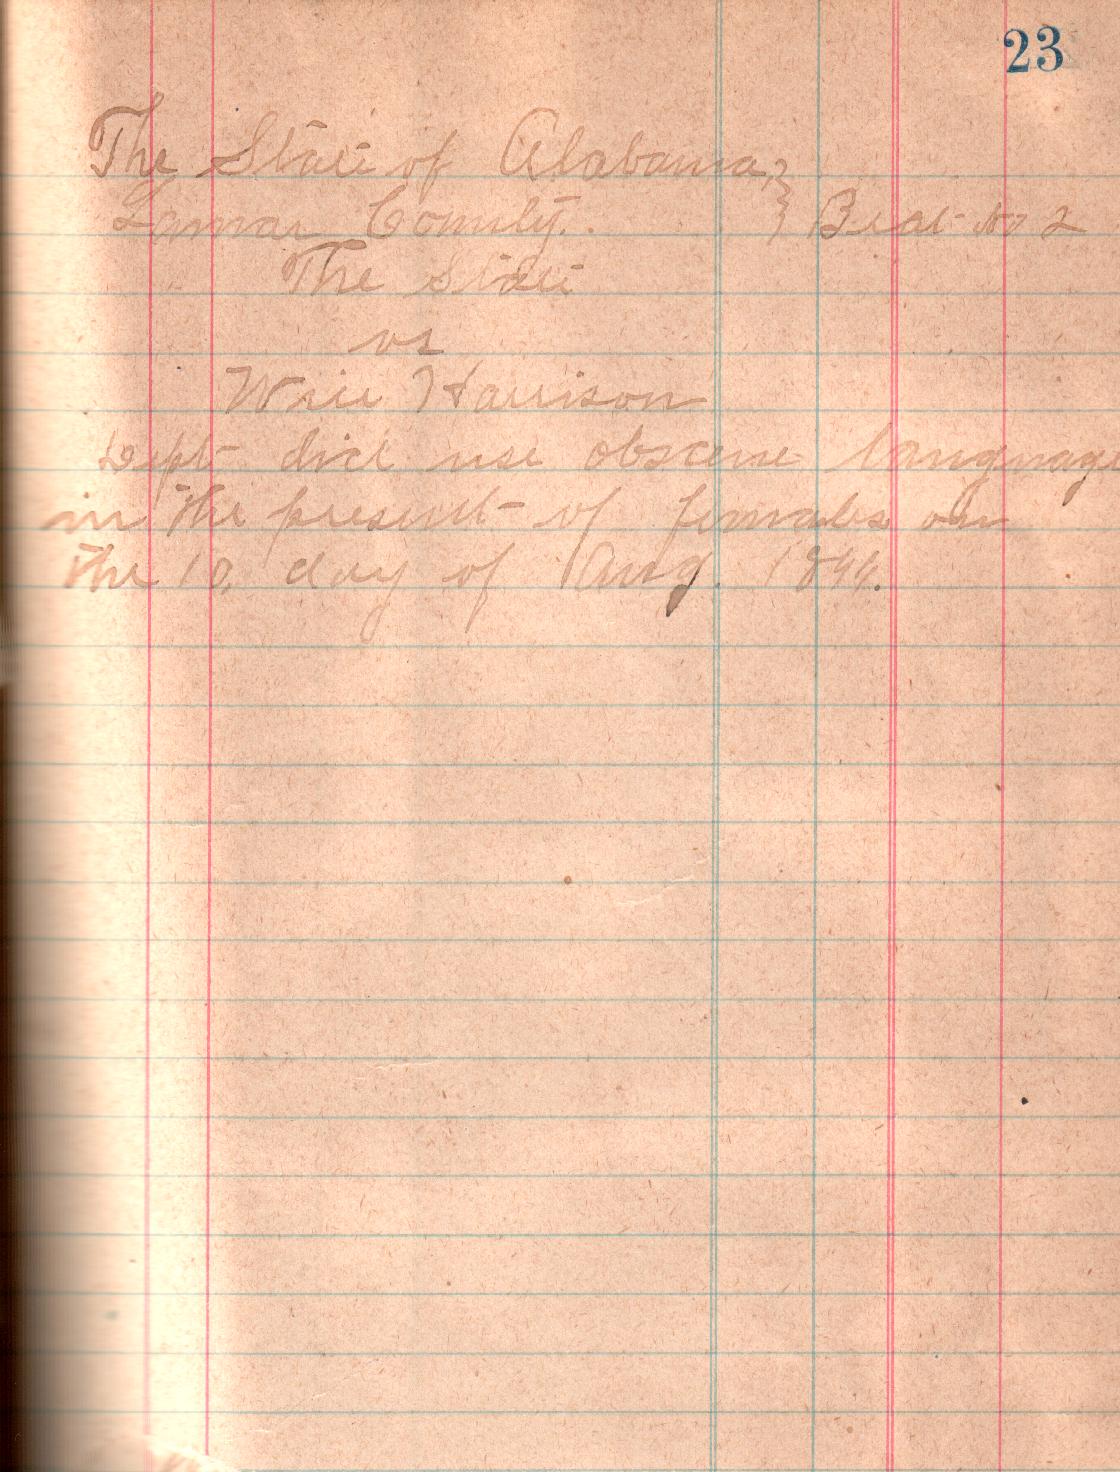 23
The State of Alabama,
Lamar County. } Beat No 2
The State
vs
Harrison
Deft did use obscene language
in the present of females on
the 10 day of Aug.